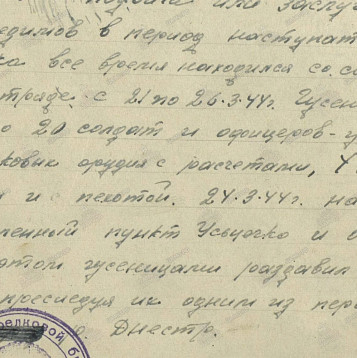 подвига или заслуг
едимов в период наступат
ка все время находился со с
страде. с 21 по 26.3.44г. Гусен
о 20 солдат и офицеров-
ковых орудия с расчетами, 4
и с пехотой. 24.3.44г. на
ленный пункт Усьцечко и
этом гусеницами раздавил
преследуя их одним из пер
Днестр.
релковой б